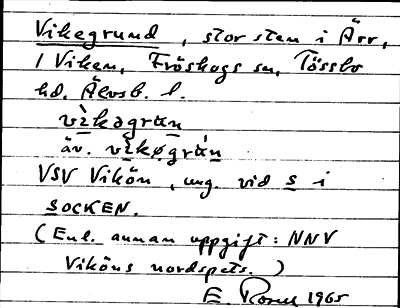 Vikegrund, stor sten i Ärr,
i Viken, Fröskogs sn, Tössbo
hd. Älvsb. l.
vìkəgrùn
äv. vìkøgrún
VSV Vikön, ung. vid s i
SOCKEN.
(Enl. annan uppgift: NNV
Viköns nordspets.)
E. 1965